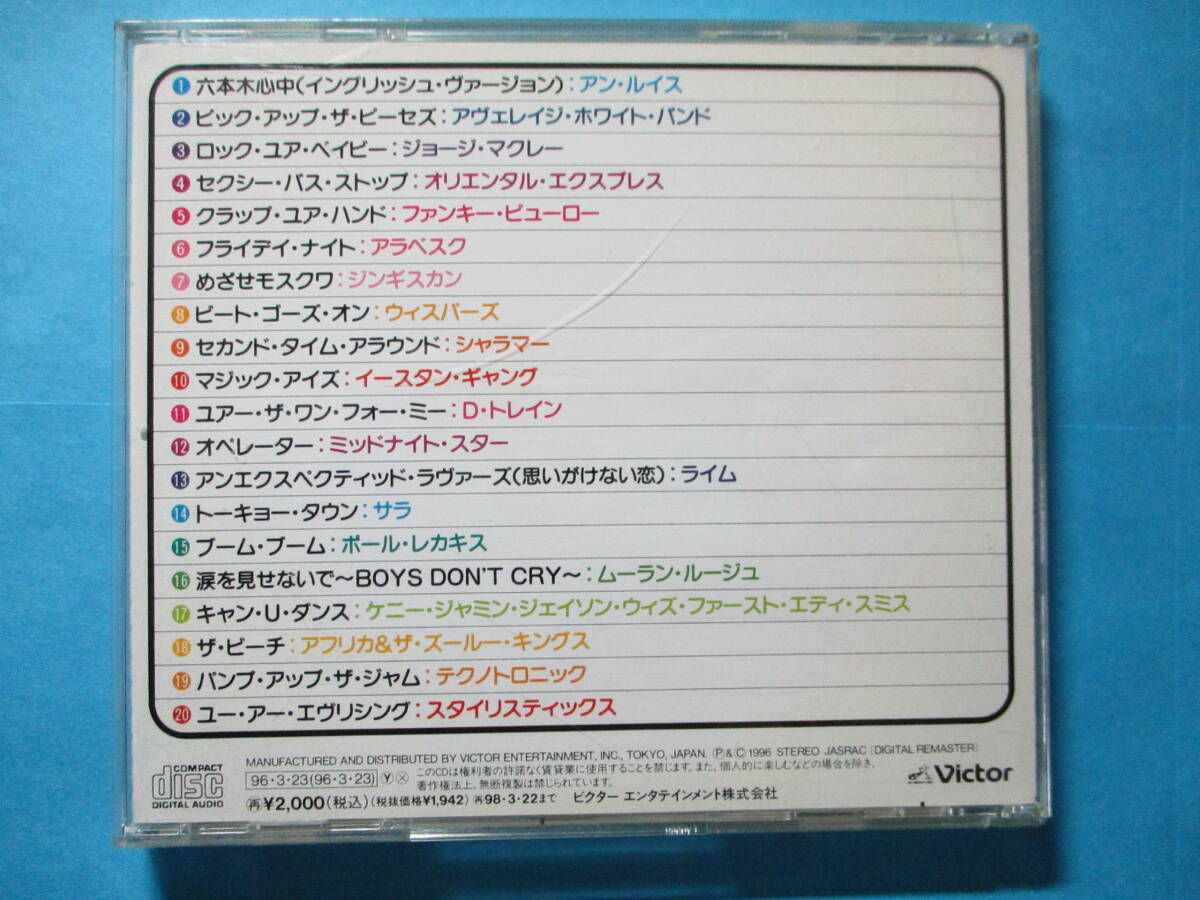 1 六本木心中(イングリッシュ・ヴァージョン):アン・ルイス
2 ピック・アップ・ザ・ピーセズ:アヴェレイジ・ホワイト・バンド
3 ロック・ユア・ベイビー:ジョージ・マクレー
4 セクシー・バス・ストップ:オリエンタル・エクスプレス
5 クラップ・ユア・ハンド:ファンキー・ビューロー
6 フライデイ・ナイト:アラベスク
7 めざせモスクワ:ジンギスカン
8 ビート・ゴーズ・オン:ウィスパーズ
9 セカンド・タイム・アラウンド:シャラマー
10 マジック・アイズ:イースタン・ギャング
11 ユアー・ザ・ワン・フォー・ミー:D・トレイン
12 オペレーター:ミッドナイト・スター
13 アンエクスペクティッド・ラヴァーズ(思いがけない恋):ライム
14 トーキョー・タウン:サラ
15 ブーム・ブーム:ポール・レカキス
16 涙を見せないで〜BOYS DON'T CRY〜:ムーラン・ルージュ
17 キャン・U・ダンス:ケニー・ジャミン・ジェイソン・ウィズ・ファースト・エディ・スミス
18 ザ・ビーチ:アフリカ&ザ・ズールー・キングス
19 パンプ・アップ・ザ・ジャム:テクノトロニック
20 ユー・アー・エヴリシング:スタイリスティックス
MANUFACTURED AND DISTRIBUTED BY VICTOR ENTERTAINMENT, INC., TOKYO, JAPAN. Ⓟ&Ⓒ 1996 STEREO JASRAC (DIGITAL REMASTER)
COMPACT
disc
DIGITAL AUDIO
96・3・23(96・3・23) Ⓨ Ⓧ このCDは権利者の許諾なく賃貸業に使用することを禁じます。また、個人的に楽しむなどの場合を除き、
著作権法上、無断複製は禁じられています。
㊥¥2,000(税込)(税抜価格¥1,942) 再98・3・22まで ビクター エンタテインメント株式会社
Victor